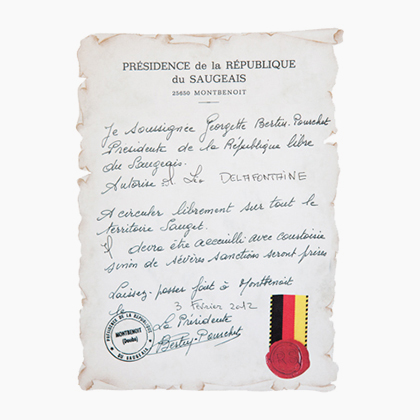 PRÉSIDENCE de la RÉPUBLIQUE
du SAUGEAIS
25650 MONTBENOIT
Je soussignée Georgette Bertin-Pourchet
Présidente de la République libre
du Saugeais.
Autorise M. Léo DELAFONTAINE
A circuler librement sur tout le
territoire Sauget.
Il devra être accueilli avec courtoisie
sinon de sévères sanctions seront prises
Laissez-passer fait à Montbenoit
le 3 Février 2012
La Présidente
Bertin-Pourchet
PRÉSIDENCE DE LA RÉPUBLIQUE
MONTBENOIT
(Doubs)
DU SAUGEAIS